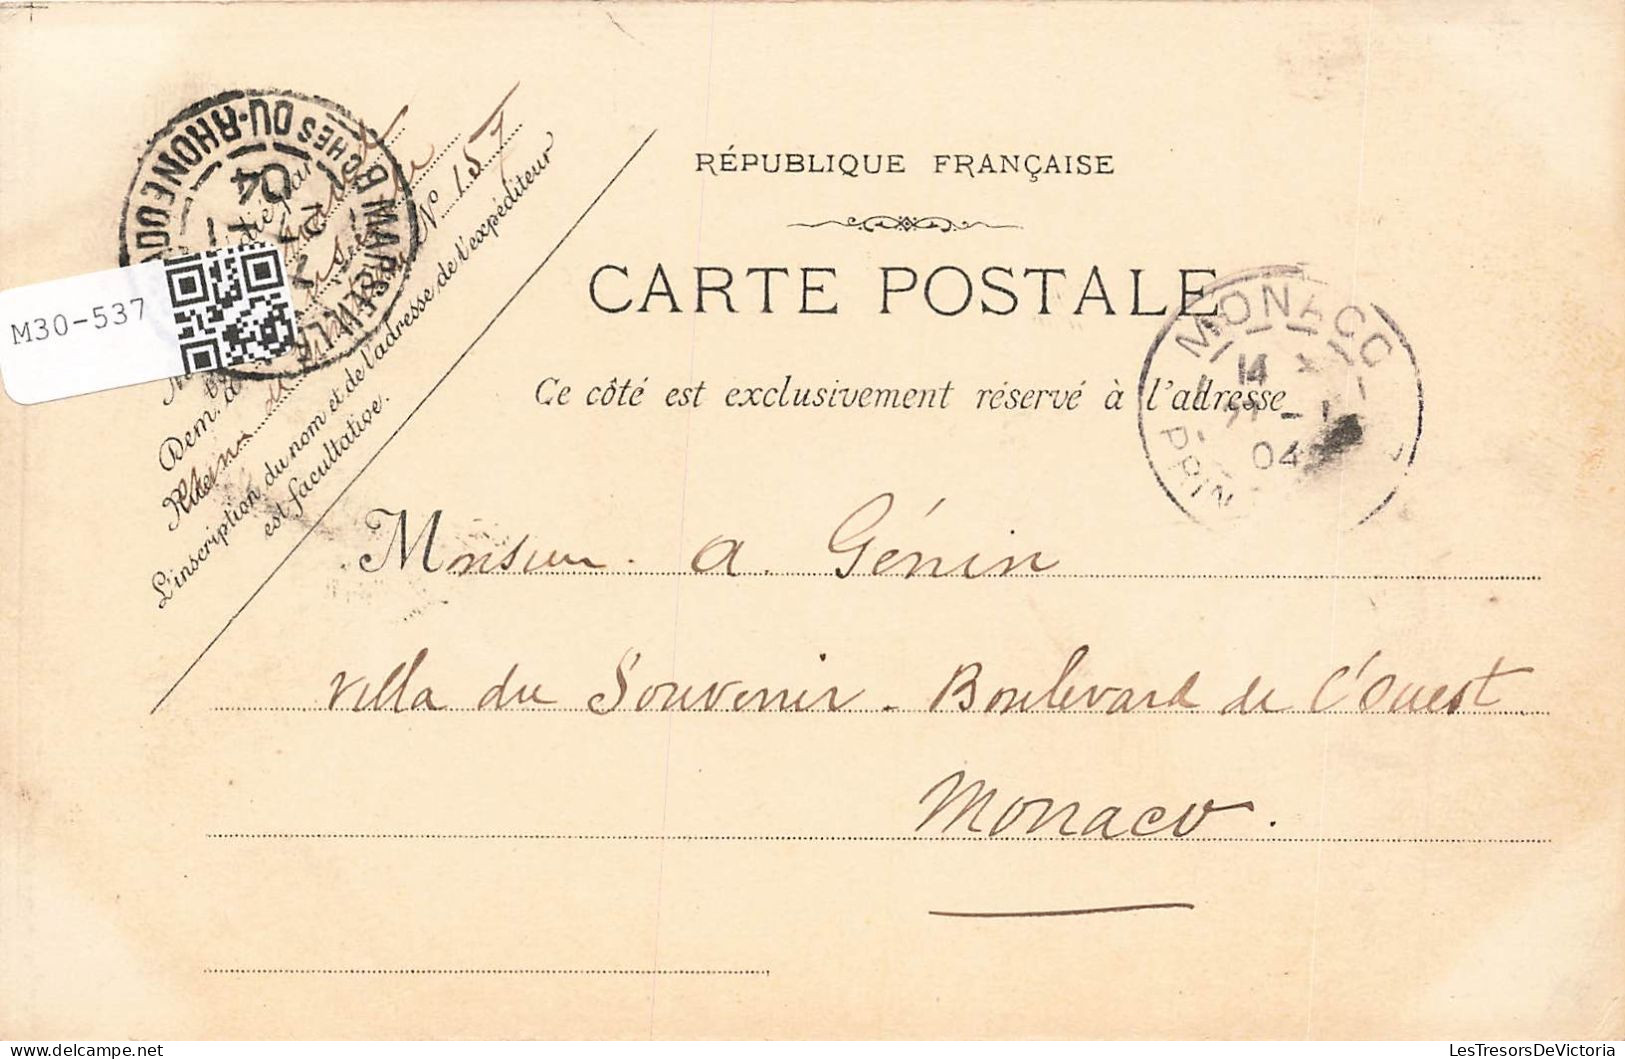 RÉPUBLIQUE FRANÇAISE
CARTE POSTALE
Ce côté est exclusivement réservé à l'adresse
MONACO
14
04
PRIN
B MARSEILLE
BCHES DU-RHONE
04
M30-537
N° 157
Dem. à
Rhin
L'inscription du nom et de l'adresse de l'expéditeur
est facultative.
Monsieur. A. Génin
Villa du Souvenir - Boulevard de l'Ouest
Monaco.
LesTresorsDeVictoria